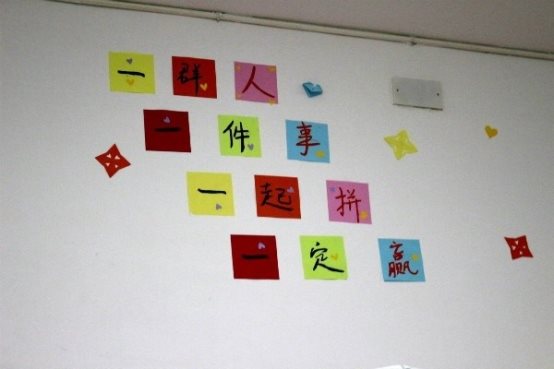 一群人
一件事
一起拼
一定赢